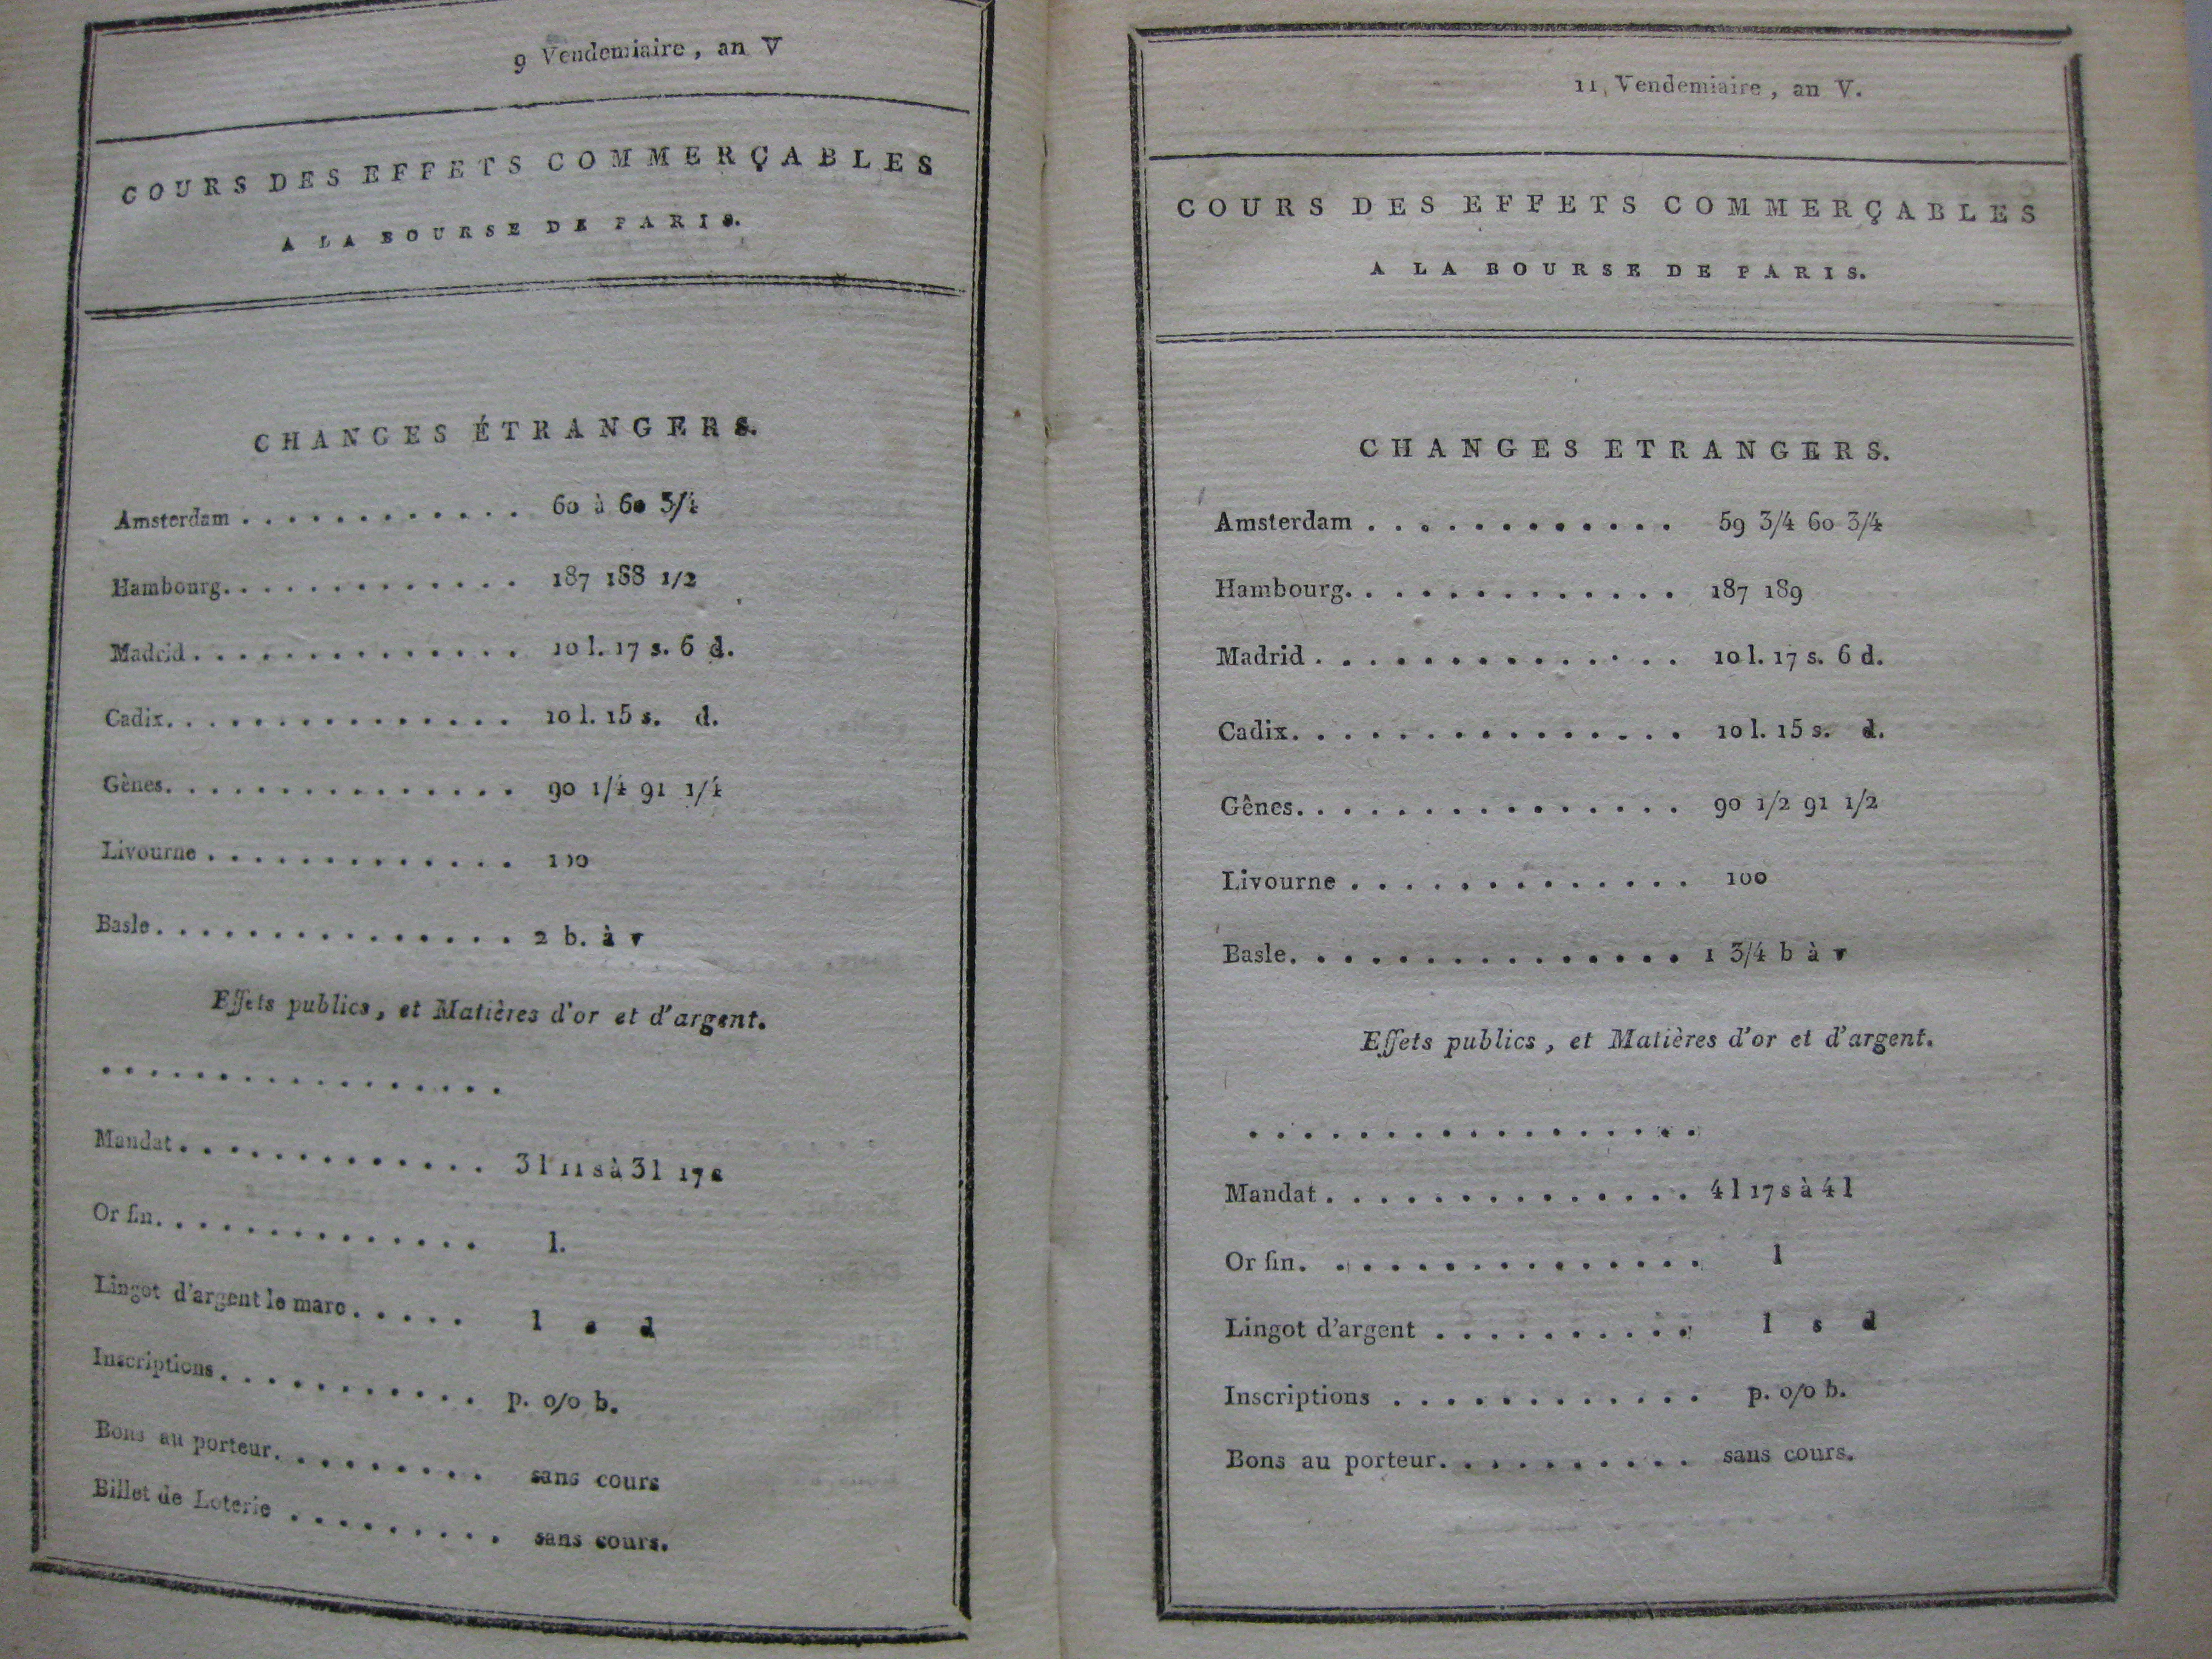 9 Vendemiaire, an V
COURS DES EFFETS COMMERÇABLES
A LA BOURSE DE PARIS.
CHANGES ÉTRANGERS.
Amsterdam . . . . . . . . . . . . . 60 à 60 3/4
Hambourg. . . . . . . . . . . . . . 187 188 1/2
Madrid . . . . . . . . . . . . . . . 10 l. 17 s. 6 d.
Cadix. . . . . . . . . . . . . . . . 10 l. 15 s. d.
Gènes. . . . . . . . . . . . . . . . 90 1/4 91 1/4
Livourne . . . . . . . . . . . . . . 100
Basle. . . . . . . . . . . . . . . . 2 b. à v
Effets publics, et Matières d'or et d'argent.
. . . . . . . . . . . . . . . . . .
Mandat. . . . . . . . . . . . . . 3 l 11 s à 3 l 17 s
Or fin. . . . . . . . . . . . . . . l.
Lingot d'argent le marc. . . . . . l s d
Inscriptions. . . . . . . . . . . . p. o/o b.
Bons au porteur. . . . . . . . . . sans cours
Billet de Loterie . . . . . . . . . sans cours.
11, Vendemiaire, an V.
COURS DES EFFETS COMMERÇABLES
A LA BOURSE DE PARIS.
CHANGES ETRANGERS.
Amsterdam . . . . . . . . . . . . 59 3/4 60 3/4
Hambourg. . . . . . . . . . . . . 187 189
Madrid . . . . . . . . . . . . . . 10 l. 17 s. 6 d.
Cadix. . . . . . . . . . . . . . . 10 l. 15 s. d.
Gênes. . . . . . . . . . . . . . . 90 1/2 91 1/2
Livourne . . . . . . . . . . . . . 100
Basle. . . . . . . . . . . . . . . 1 3/4 b à v
Effets publics, et Matières d'or et d'argent.
. . . . . . . . . . . . . . . . .
Mandat . . . . . . . . . . . . . . 4 l 17 s à 4 l
Or fin. . . . . . . . . . . . . . . l
Lingot d'argent . . . . . . . . . . l s d
Inscriptions . . . . . . . . . . . . p. o/o b.
Bons au porteur. . . . . . . . . . sans cours.